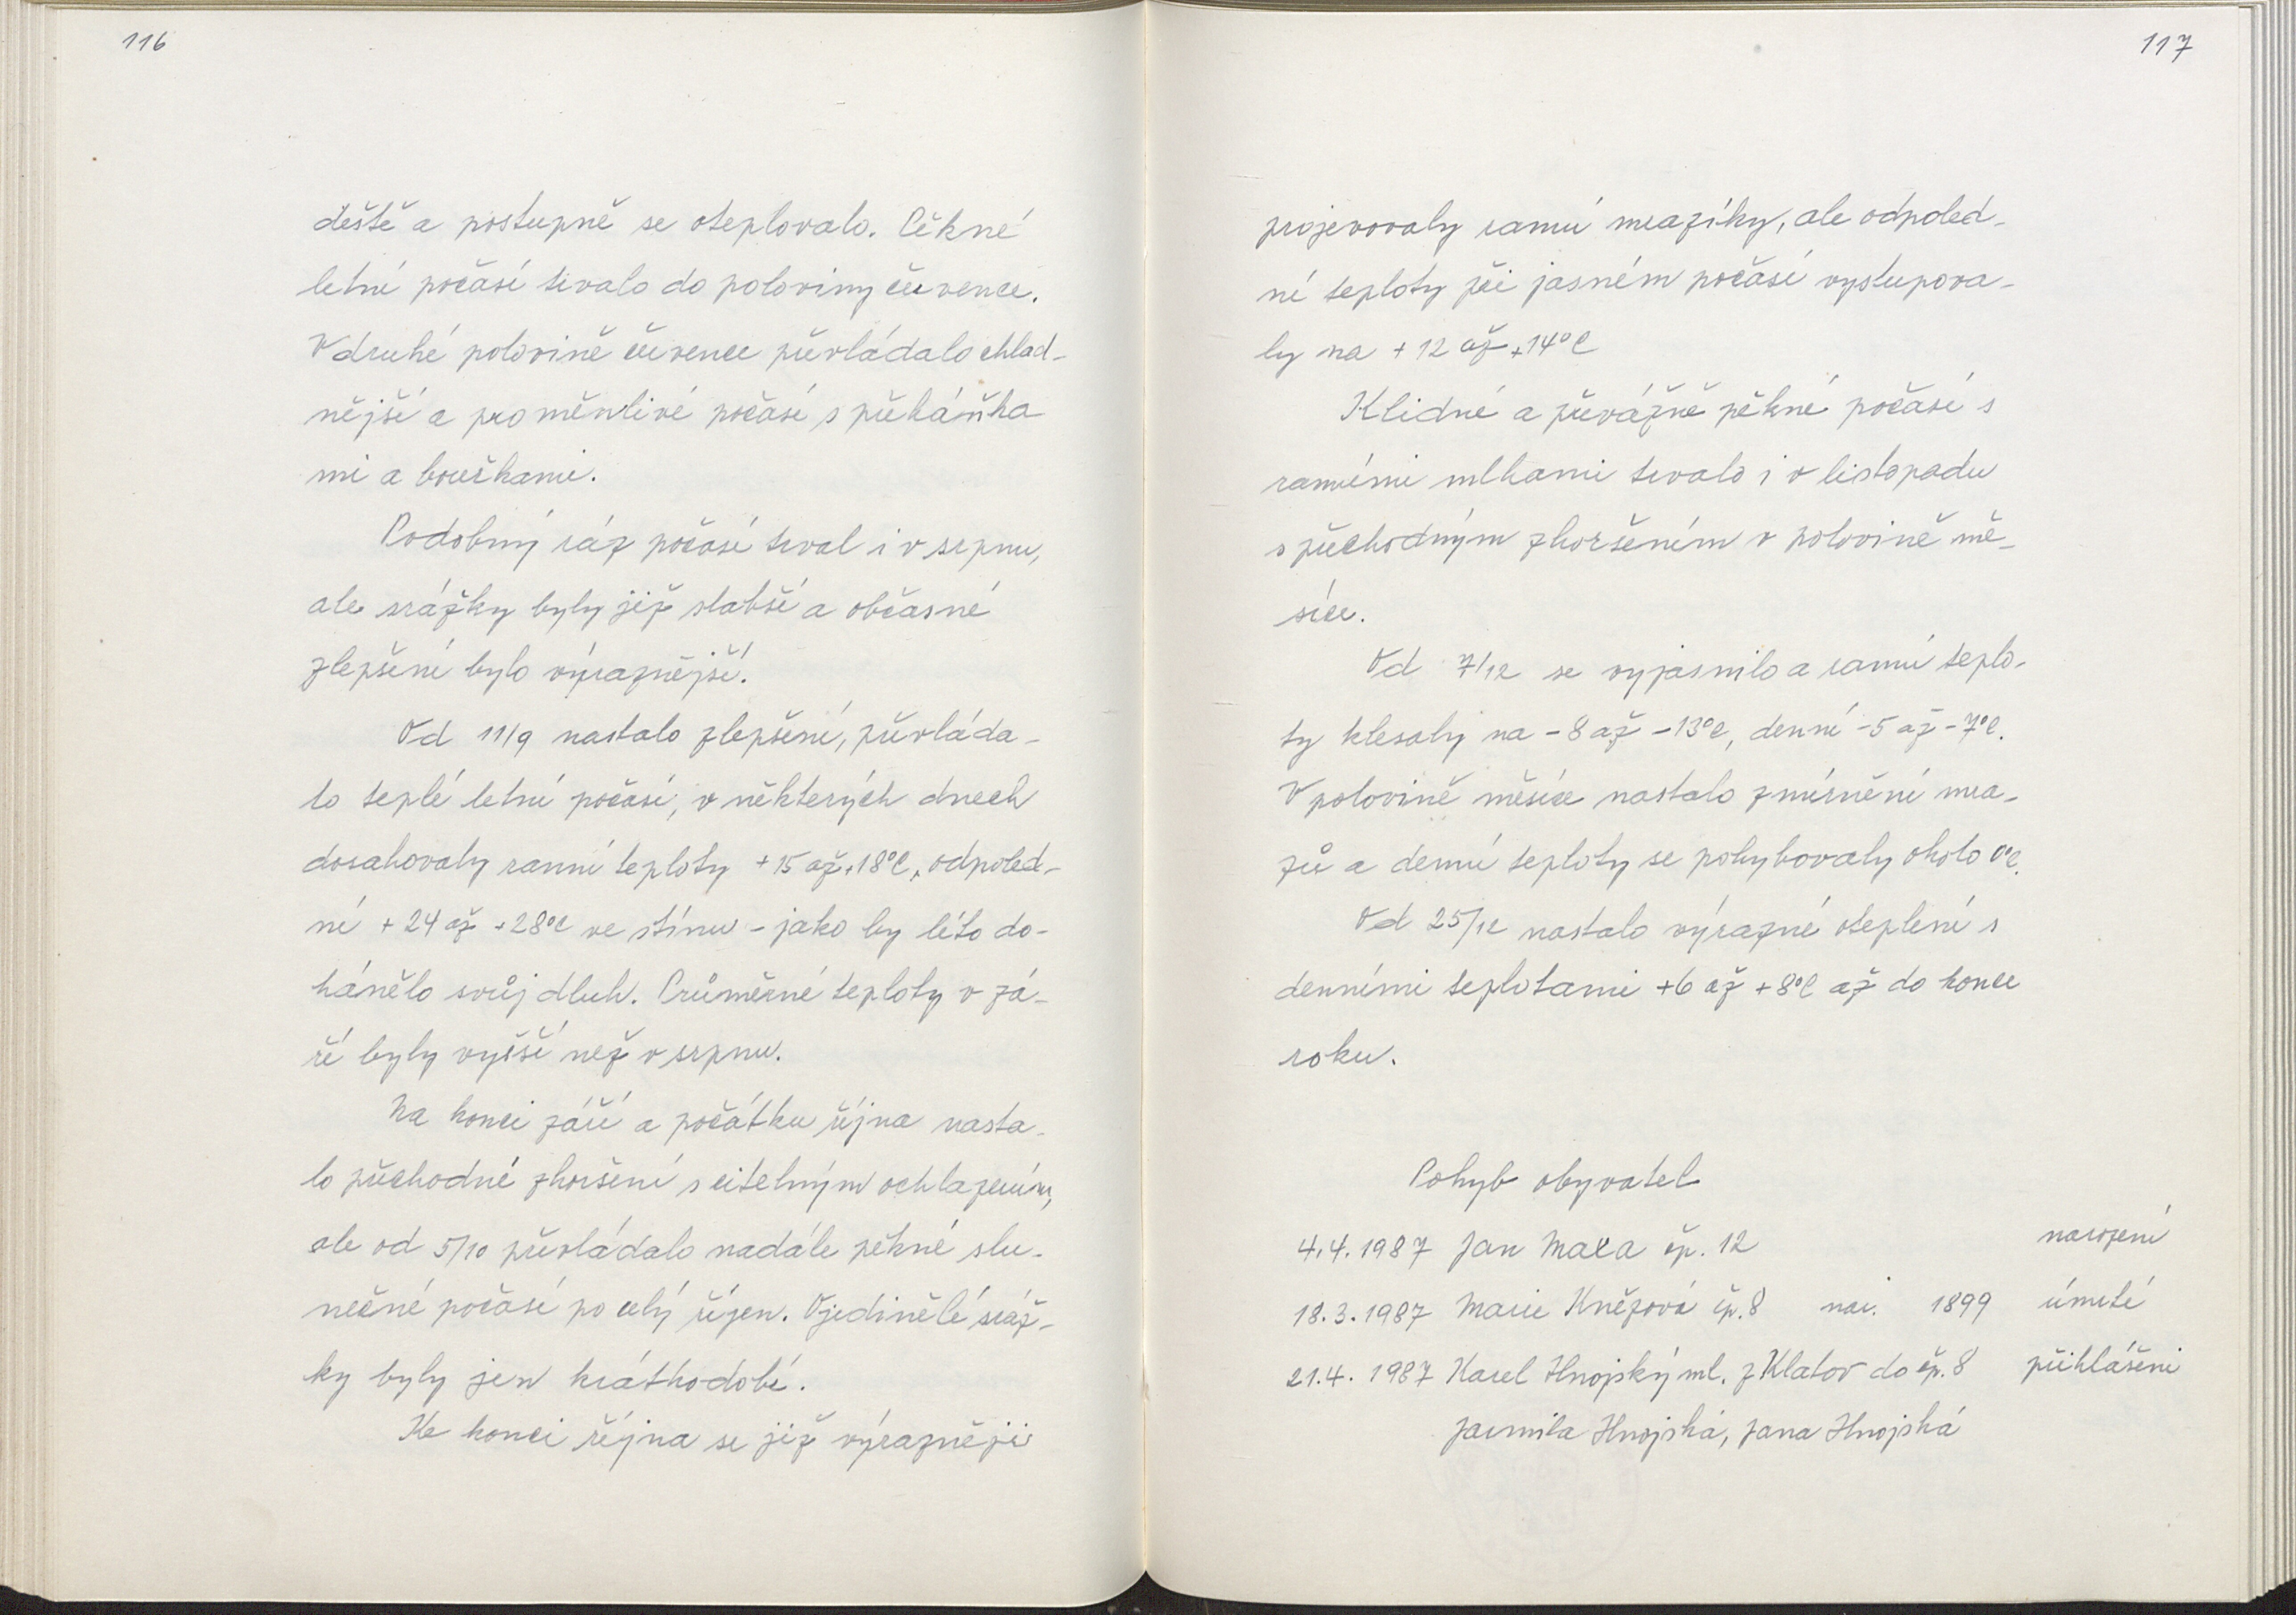 116
deště a postupně se oteplovalo. Pěkné
letní počasí trvalo do poloviny července.
V druhé polovině července převládalo chlad-
nější a proměnlivé počasí s přeháňka
mi a bouřkami.
Podobný ráz počasí trval i v srpnu,
ale srážky byly již slabší a občasné
zlepšení bylo výraznější.
Od 11/9 nastalo zlepšení, převláda-
lo teplé letní počasí, v některých dnech
dosahovaly ranní teploty +15 až +18°C, odpoled-
ní +24 až +28°C ve stínu - jako by léto do-
hánělo svůj dluh. Průměrné teploty v zá-
ří byly vyšší než v srpnu.
Na konci září a počátku října nasta-
lo přechodné zhoršení s citelným ochlazením,
ale od 5/10 převládalo nadále pěkné slu-
nečné počasí po celý říjen. Ojedinělé sráž-
ky byly jen krátkodobé.
Ke konci října se již výrazněji
117
projevovaly ranní mrazíky, ale odpoled-
ní teploty při jasném počasí vystupova-
ly na +12 až +14°C
Klidné a převážně pěkné počasí s
ranními mlhami trvalo i v listopadu
s přechodným zhoršením v polovině mě-
síce.
Od 7/12 se vyjasnilo a ranní teplo-
ty klesaly na -8 až -13°C, denní -5 až -7°C.
V polovině měsíce nastalo zmírnění mra-
zů a denní teploty se pohybovaly okolo 0°C.
Od 25/12 nastalo výrazné oteplení s
denními teplotami +6 až +8°C až do konce
roku.
Pohyb obyvatel
4.4.1987 Jan Maxa čp. 12 narození
18.3.1987 Marie Kněžová čp.8 nar. 1899 úmrtí
21.4.1987 Karel Hnojský ml. z Klatov do čp.8 přihlášeni
Jarmila Hnojská, Jana Hnojská